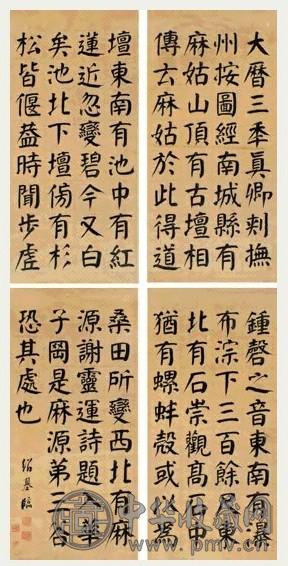 大曆三秊真卿刺撫
州按圖經南城縣有
麻姑山頂有古壇相
傳云麻姑於此得道
壇東南有池中有紅
蓮近忽變碧今又白
矣池北下壇傍有杉
松皆偃葢時聞步虛
鍾磬之音東南有瀑
布淙下三百餘尺東
北有石崇觀高石中
猶有螺蚌殼或以為
桑田所變西北有麻
源謝靈運詩題入華
子岡是麻源第三谷
恐其處也
紹基臨
中华收藏网
www.pmv.cn